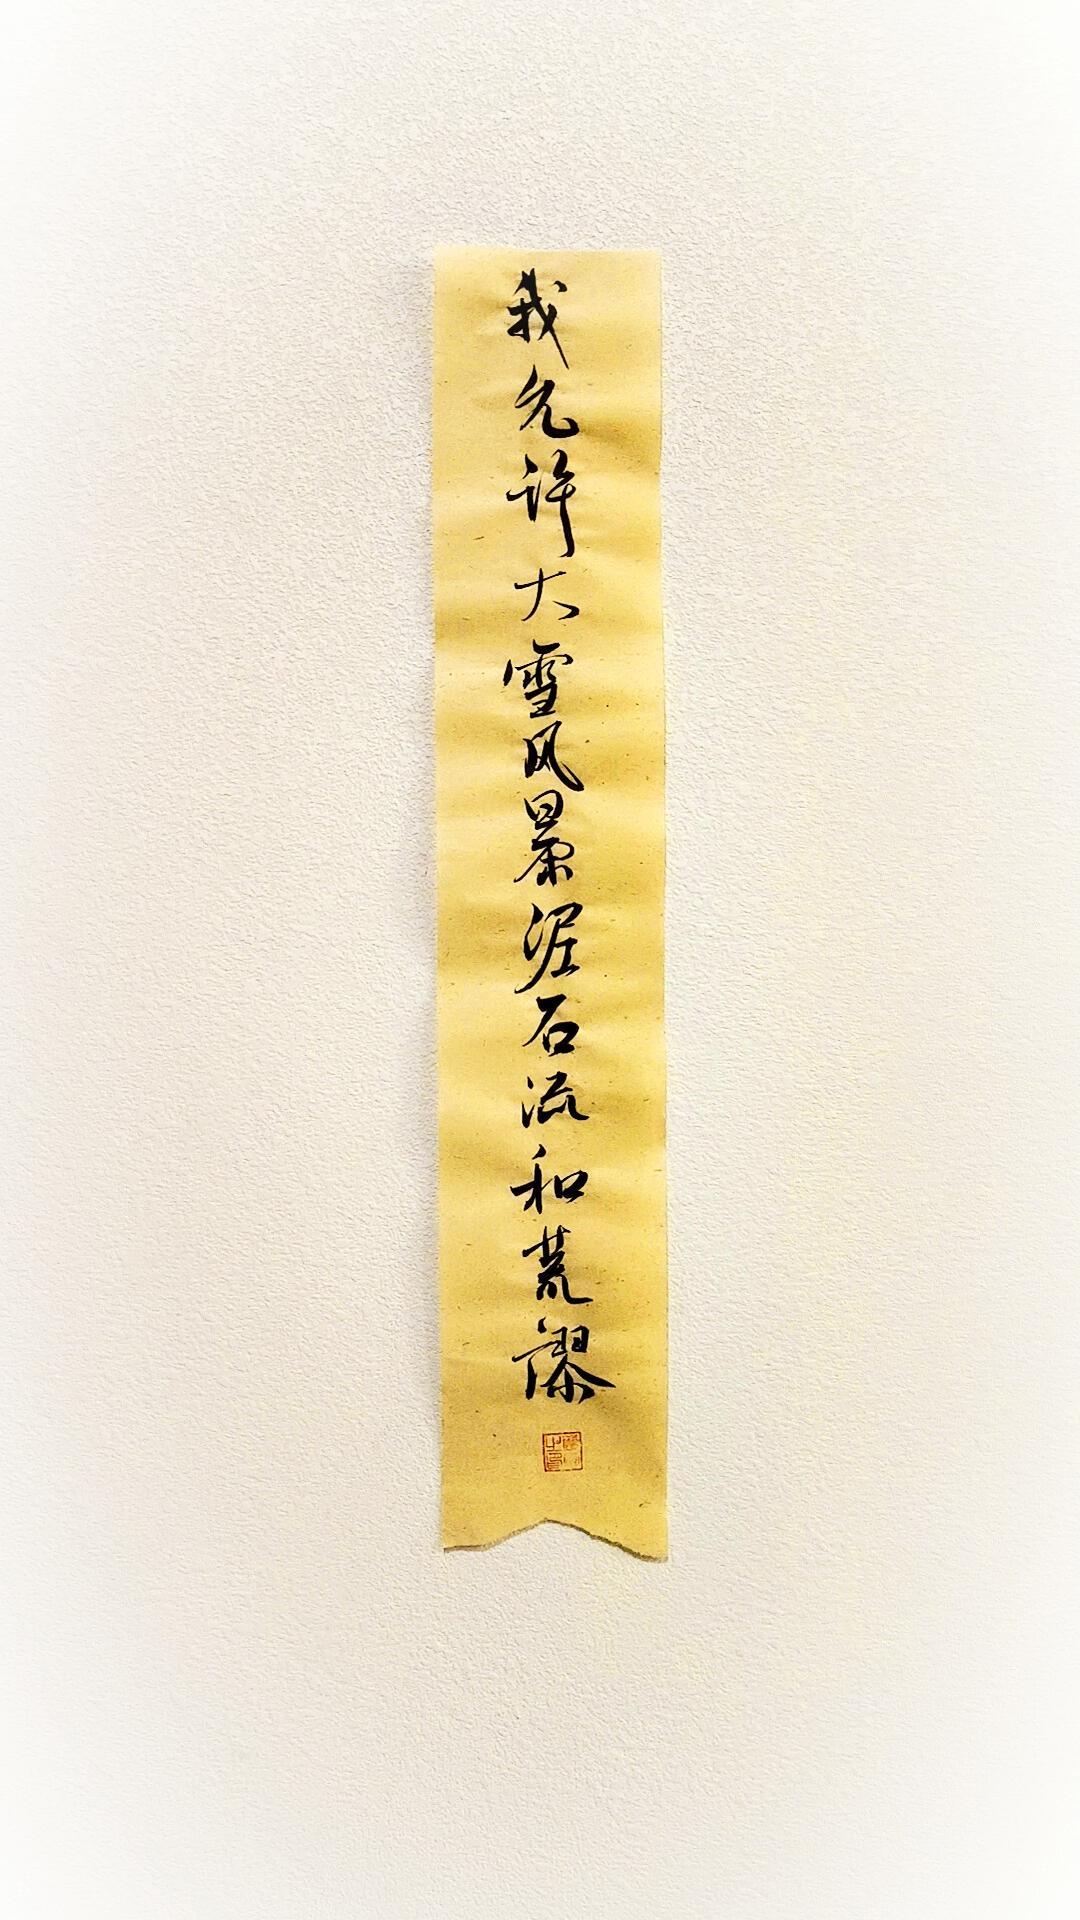 我允许大雪风景泥石流和荒谬